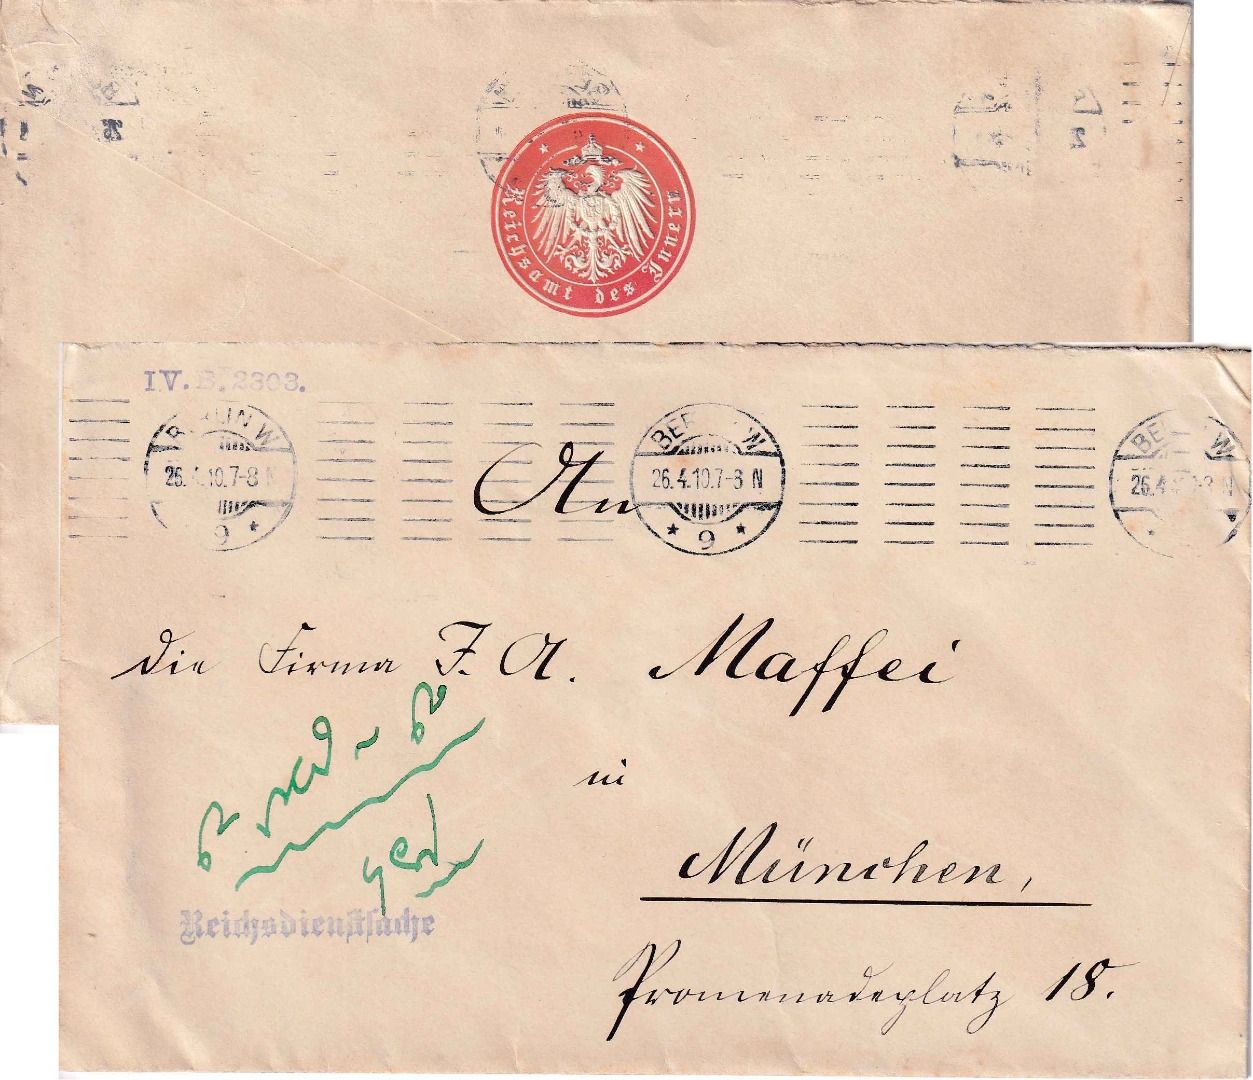 Reichsamt des Innern
IV. B. 2303.
BERLIN W
26.4.10.7-8 N
9
BERLIN W
26.4.10.7-8 N
* 9 *
BERLIN W
26.4.10.7-8 N
An
die Firma J. A. Maffei
in
München,
Reichsdienstsache
Promenadeplatz 18.